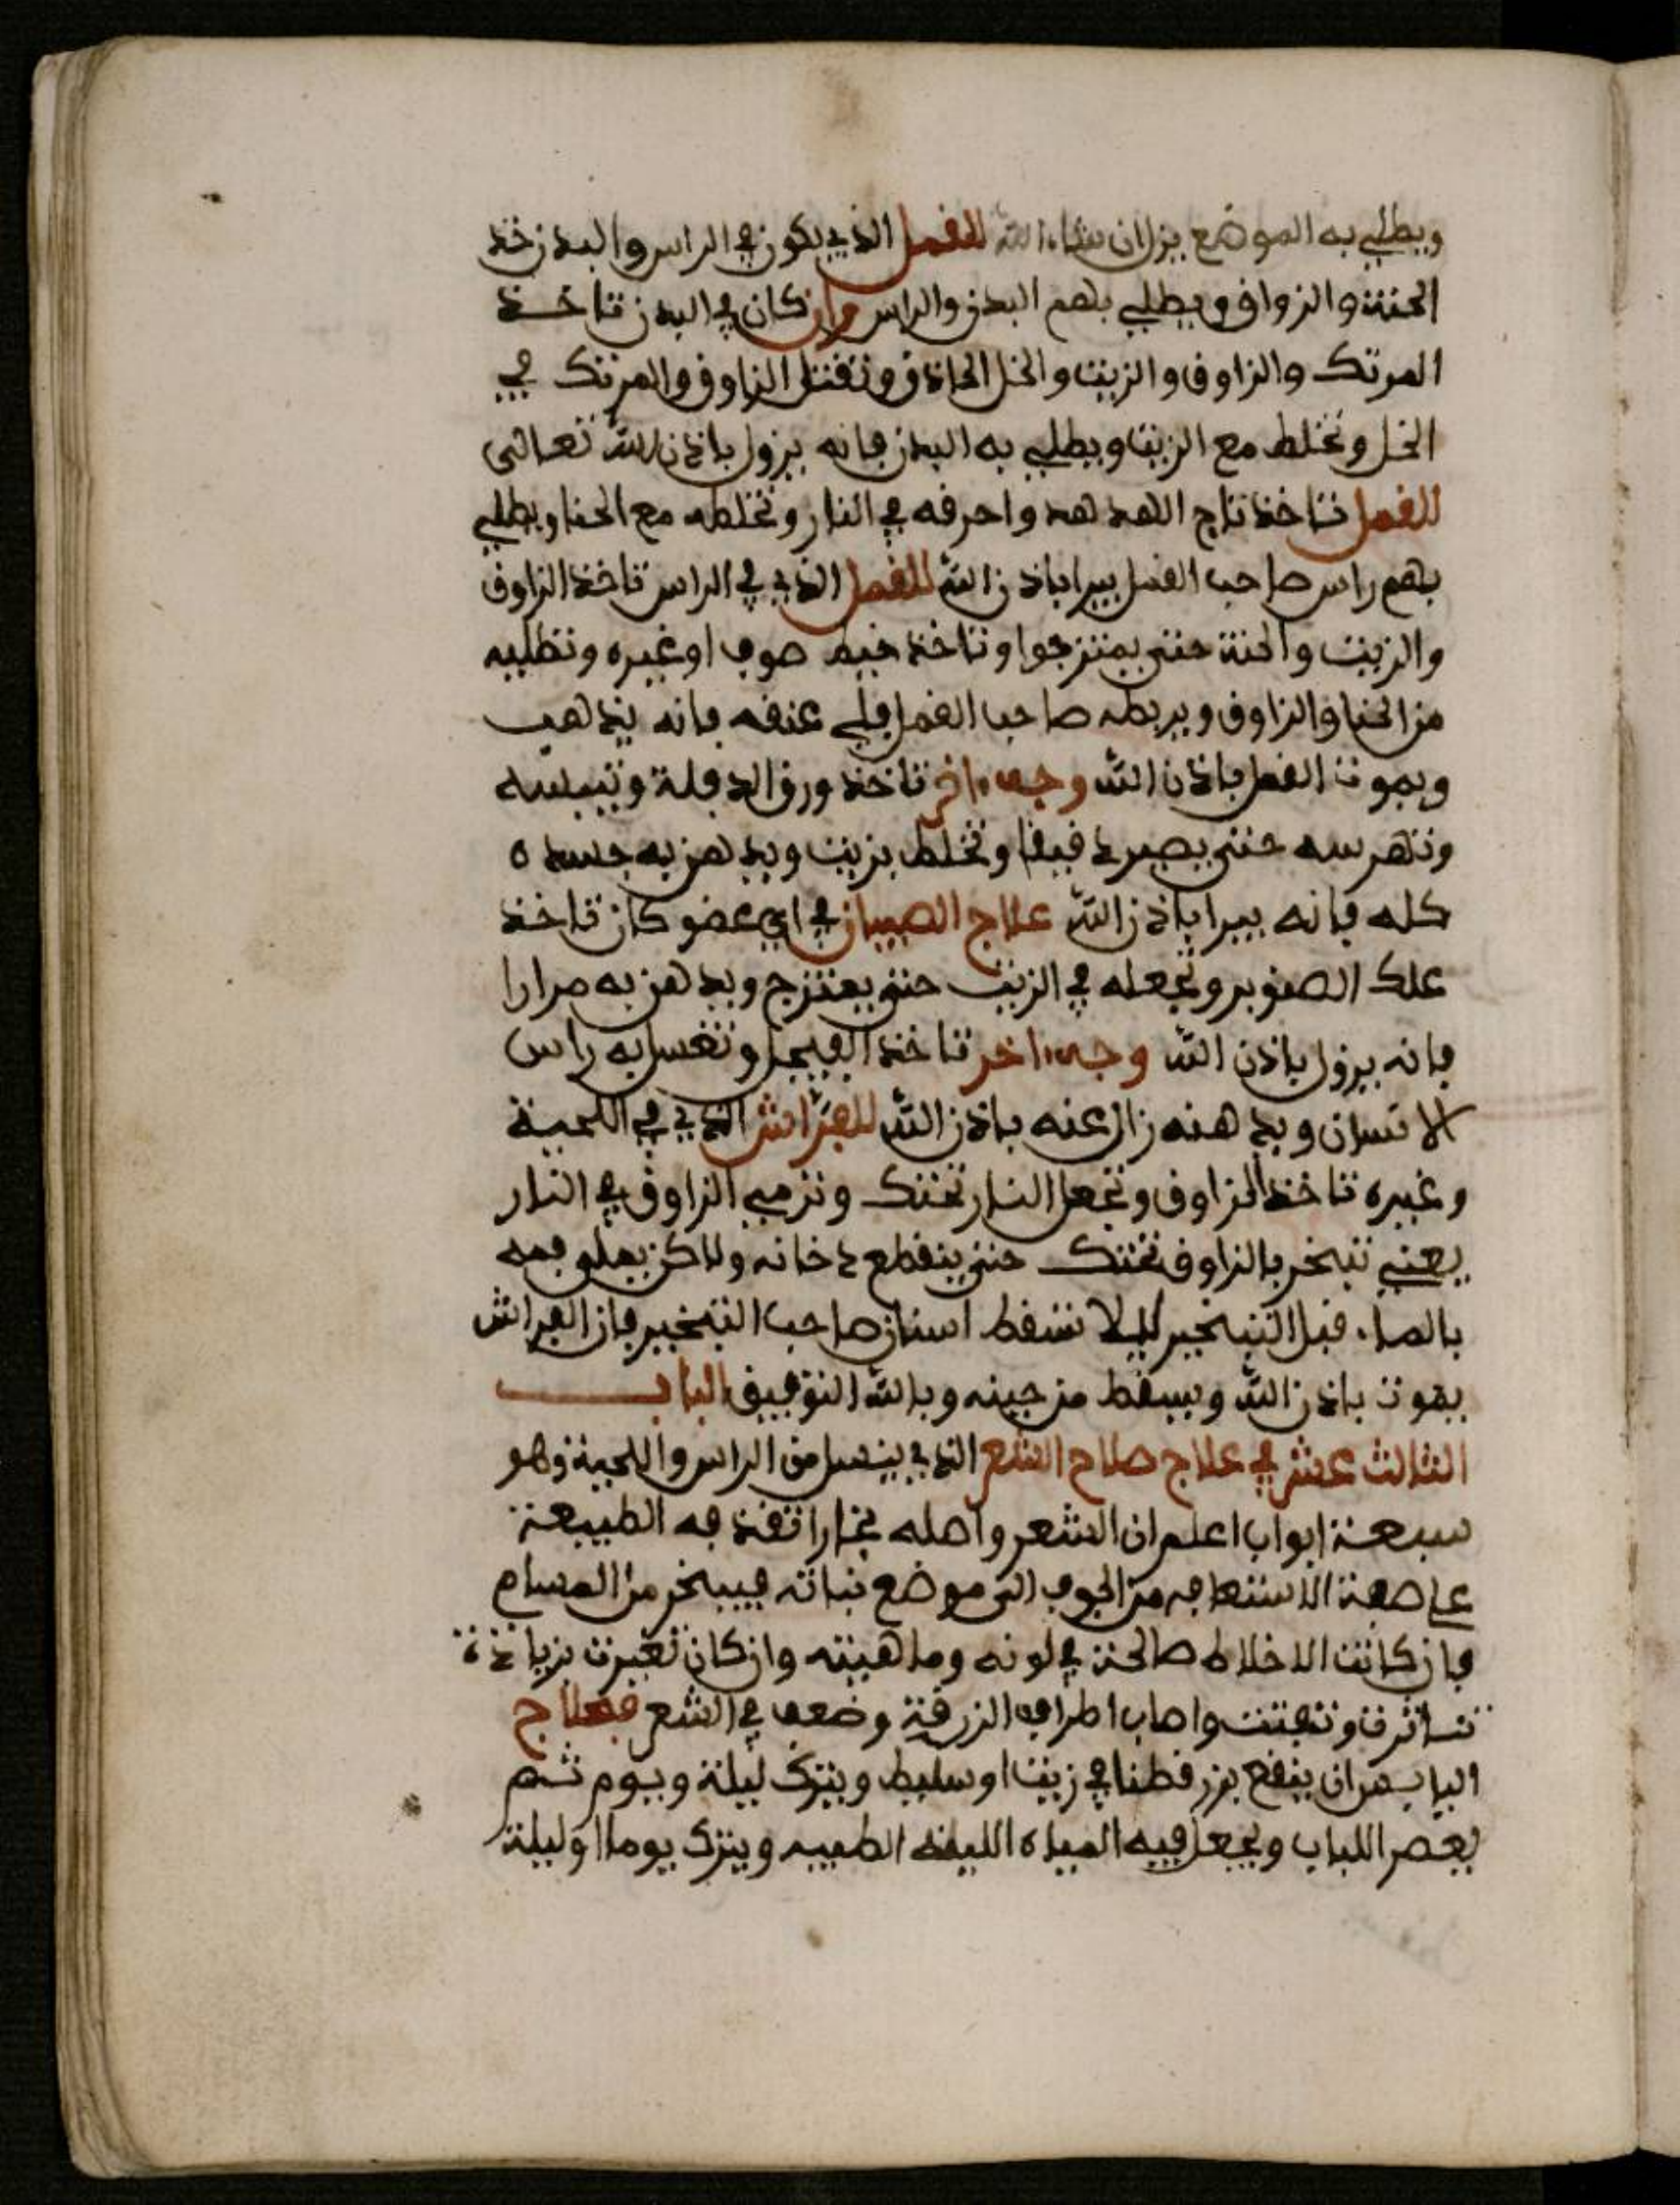 ويطلي به الموضع يزل ان شاء الله للقمل الذي يكون في الراس والبدن خذ
الحنة والزواق ويطلي بهم البدن والراس وان كان في البدن تاخذ
المرتك والزاوق والزيت والخل الحاذق وتقتل الزاوق والمرتك في
الخل وتخلط مع الزيت ويطلي به البدن فانه يزول باذن الله تعالى
للقمل تاخذ تاج الهدهد واحرقه في النار وتخلطه مع الحنا ويطلي
بهم راس صاحب القمل يبرا باذن الله للقمل الذي في الراس تاخذ الزاوق
والزيت والحنة حتى يمتزجوا وتاخذ خيط صوف او غيره وتطليه
من الحنا والزاوق ويربطه صاحب القمل في عنقه فانه يذهب
ويموت القمل باذن الله وجه ءاخر تاخذ ورق الدفلة وتيبسه
وتهرسه حتى يصير دقيقا وتخلط بزيت ويدهن به جسده
كله فانه يبرا باذن الله علاج الصيبان في اي عضو كان تاخذ
علك الصنوبر وتجعله في الزيت حتى يمتزج ويدهن به مرارا
فانه يزول باذن الله وجه ءاخر تاخذ الفيجل وتغسل به راس
الانسان ويدهنه زال عنه باذن الله للفراش الذي في اللحية
وغيره تاخذ الزاوق وتجعل النار تحتك وترمي الزاوق في النار
يعني تبخر بالزاوق تحتك حتى ينقطع دخانه ولاكن يملو فمه
بالماء قبل التبخير ليلا تسقط اسنان صاحب التبخير فان الفراش
يموت باذن الله ويسقط من حينه وبالله التوفيق الباب
الثالث عشر في علاج صلاح الشعر الذي ينسل من الراس واللحية وهو
سبعة ابواب اعلم ان الشعر واصله بخارا تقذفه الطبيعة
على صفة الاستعا من الجوف الى موضع نباته فيبخر من المسام
فان كانت الاخلاط صالحة في لونه وماهيته وان كان تغيرت بزيادة
تناثرت وتفتت واصاب اطرافه الزرقة وضعف في الشعر فعلاج
الباب من ان ينقع بزر قطنا في زيت او سليط ويترك ليلة ويوم ثم
يعصر اللباب ويجعل فيه المياه الطيبه ويترك يوما وليلة